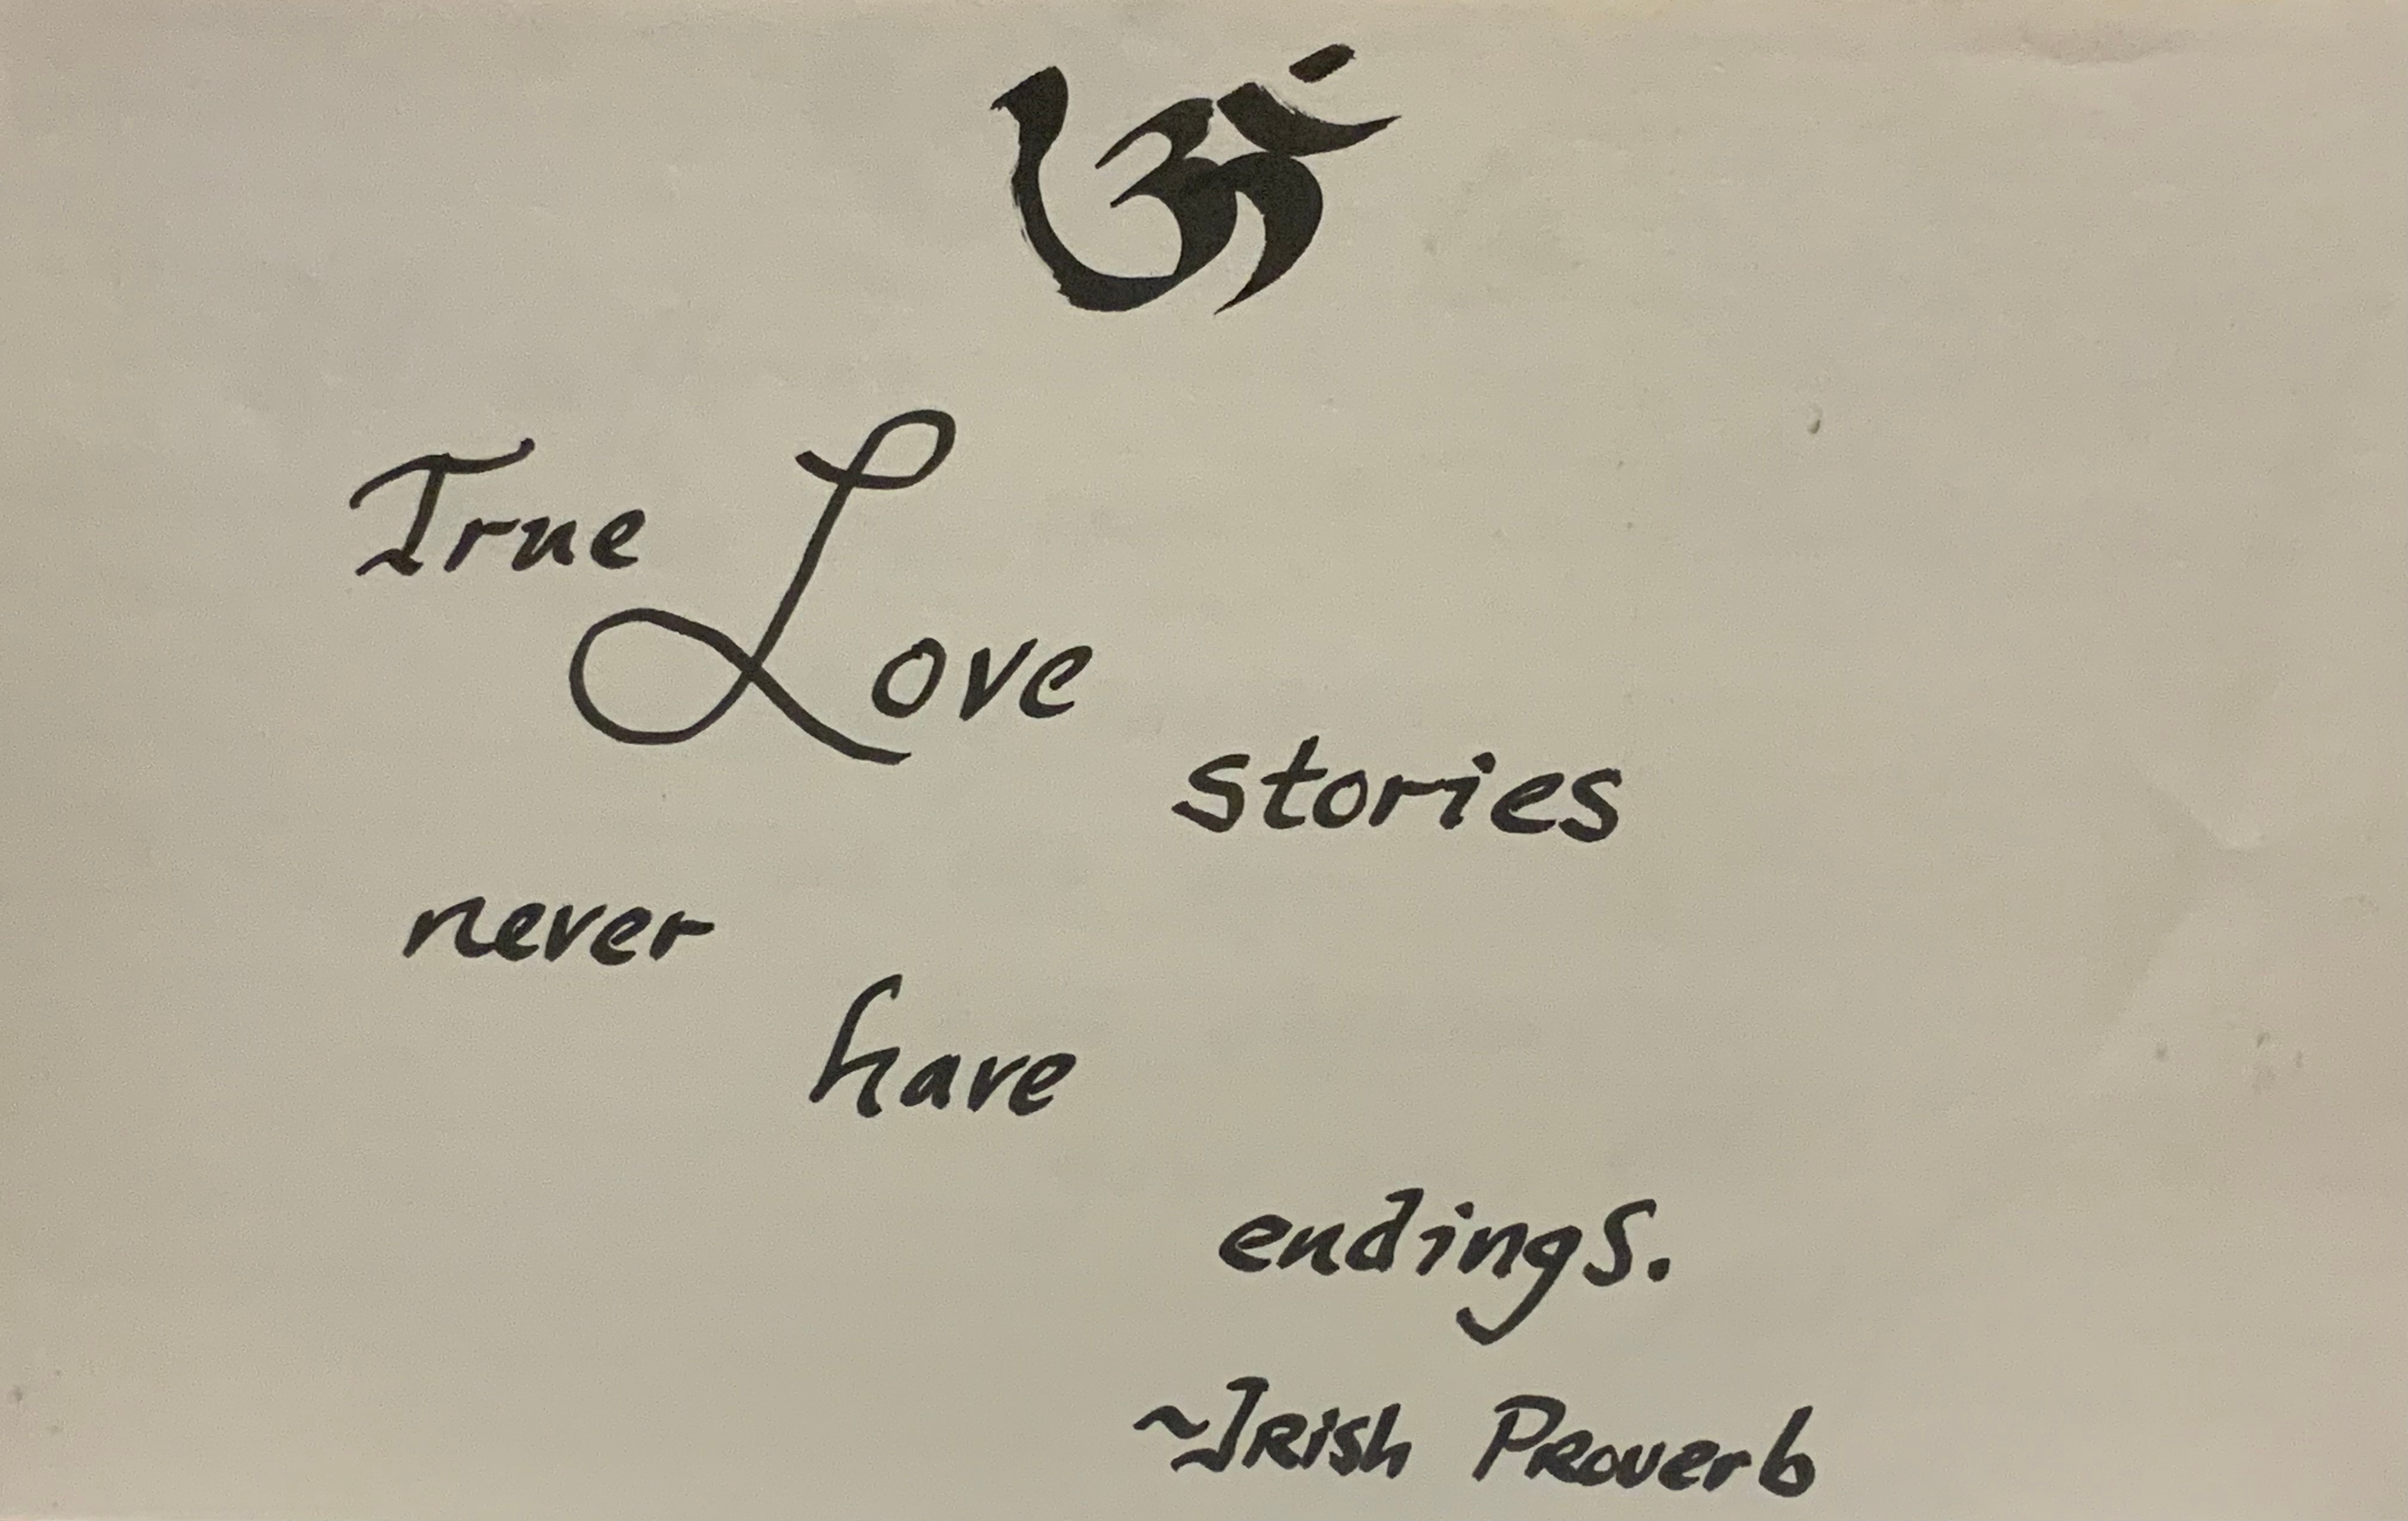 ॐ
True Love stories
never have endings.
~Irish Proverb